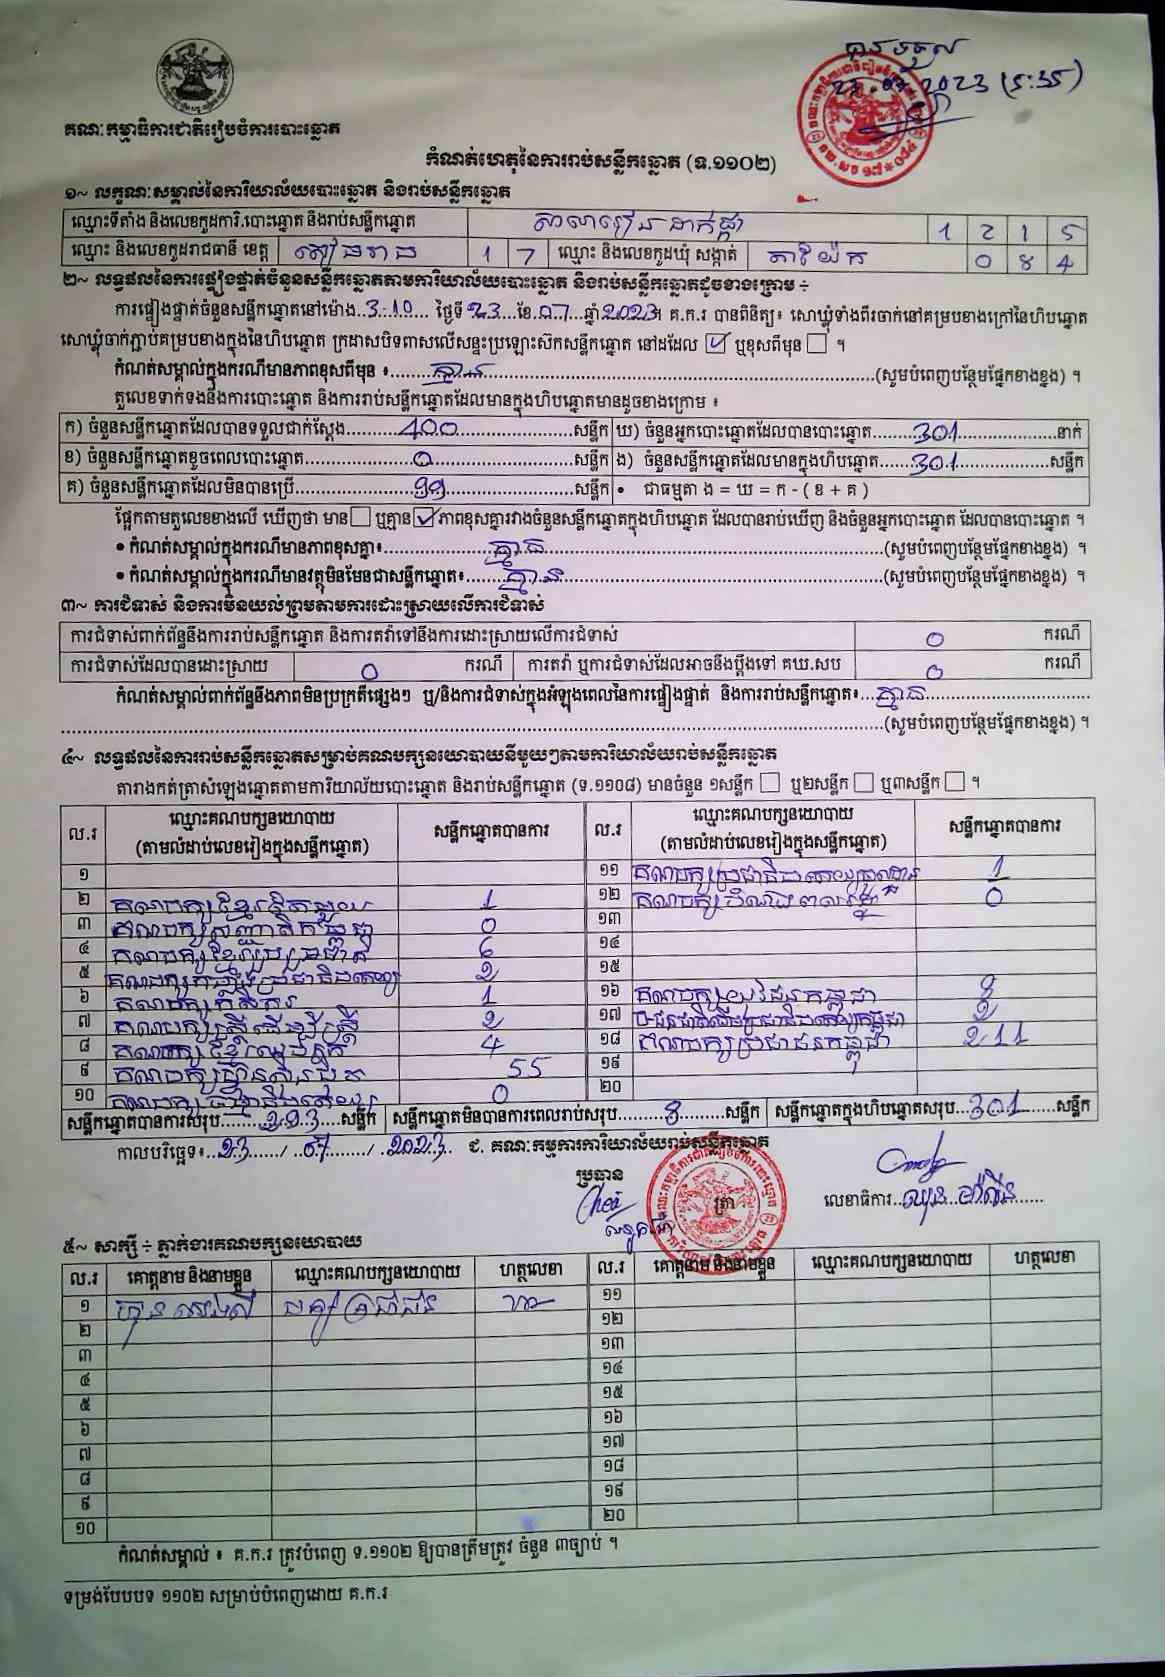 បានទទួល
23.07.2023 (5:35)
គណៈកម្មាធិការជាតិរៀបចំការបោះឆ្នោត
កំណត់ហេតុនៃការរាប់សន្លឹកឆ្នោត (ទ.១១០២)
១~ លក្ខណៈសម្គាល់នៃការិយាល័យបោះឆ្នោត និងរាប់សន្លឹកឆ្នោត
ឈ្មោះទីតាំង និងលេខកូដការិ.បោះឆ្នោត និងរាប់សន្លឹកឆ្នោត សាលារៀន ដាក់ផ្កា 1 2 1 5
ឈ្មោះ និងលេខកូដរាជធានី ខេត្ត សៀមរាប 1 7 ឈ្មោះ និងលេខកូដឃុំ សង្កាត់ តាយ៉ែក 0 8 4
២~ លទ្ធផលនៃការផ្ទៀងផ្ទាត់ចំនួនសន្លឹកឆ្នោតតាមការិយាល័យបោះឆ្នោត និងរាប់សន្លឹកឆ្នោតដូចខាងក្រោម ÷
ការផ្ទៀងផ្ទាត់ចំនួនសន្លឹកឆ្នោតនៅម៉ោង..3:10.... ថ្ងៃទី 23 ខែ 07 ឆ្នាំ 2023។ គ.ក.រ បានពិនិត្យ៖ សោឃ្លុំទាំងពីរចាក់នៅគម្របខាងក្រៅនៃហិបឆ្នោត
សោឃ្លុំចាក់ភ្ជាប់គម្របខាងក្នុងនៃហិបឆ្នោត ក្រដាសបិទពាសលើសន្ទះប្រឡោះស៊កសន្លឹកឆ្នោត នៅដដែល ☑ ឬខុសពីមុន ☐ ។
កំណត់សម្គាល់ក្នុងករណីមានភាពខុសពីមុន ៖ គ្មាន (សូមបំពេញបន្ថែមផ្នែកខាងខ្នង) ។
តួលេខទាក់ទងនឹងការបោះឆ្នោត និងការរាប់សន្លឹកឆ្នោតដែលមានក្នុងហិបឆ្នោតមានដូចខាងក្រោម ៖
ក) ចំនួនសន្លឹកឆ្នោតដែលបានទទួលជាក់ស្តែង 400 សន្លឹក ឃ) ចំនួនអ្នកបោះឆ្នោតដែលបានបោះឆ្នោត 301 នាក់
ខ) ចំនួនសន្លឹកឆ្នោតខូចពេលបោះឆ្នោត 0 សន្លឹក ង) ចំនួនសន្លឹកឆ្នោតដែលមានក្នុងហិបឆ្នោត 301 សន្លឹក
គ) ចំនួនសន្លឹកឆ្នោតដែលមិនបានប្រើ 99 សន្លឹក • ជាធម្មតា ង = ឃ = ក - ( ខ + គ )
ផ្អែកតាមតួលេខខាងលើ ឃើញថា មាន ☐ ឬគ្មាន ☑ ភាពខុសគ្នារវាងចំនួនសន្លឹកឆ្នោតក្នុងហិបឆ្នោត ដែលបានរាប់ឃើញ និងចំនួនអ្នកបោះឆ្នោត ដែលបានបោះឆ្នោត ។
• កំណត់សម្គាល់ក្នុងករណីមានភាពខុសគ្នា៖ គ្មាន (សូមបំពេញបន្ថែមផ្នែកខាងខ្នង) ។
• កំណត់សម្គាល់ក្នុងករណីមានវត្ថុមិនមែនជាសន្លឹកឆ្នោត៖ គ្មាន (សូមបំពេញបន្ថែមផ្នែកខាងខ្នង) ។
៣~ ការជំទាស់ និងការមិនយល់ព្រមតាមការដោះស្រាយលើការជំទាស់
ការជំទាស់ពាក់ព័ន្ធនឹងការរាប់សន្លឹកឆ្នោត និងការតវ៉ាទៅនឹងការដោះស្រាយលើការជំទាស់ 0 ករណី
ការជំទាស់ដែលបានដោះស្រាយ 0 ករណី ការតវ៉ា ឬការជំទាស់ដែលអាចនឹងប្តឹងទៅ គឃ.សប 0 ករណី
កំណត់សម្គាល់ពាក់ព័ន្ធនឹងភាពមិនប្រក្រតីផ្សេងៗ ឬ/និងការជំទាស់ក្នុងអំឡុងពេលនៃការផ្ទៀងផ្ទាត់ និងការរាប់សន្លឹកឆ្នោត៖ គ្មាន
(សូមបំពេញបន្ថែមផ្នែកខាងខ្នង) ។
៤~ លទ្ធផលនៃការរាប់សន្លឹកឆ្នោតសម្រាប់គណបក្សនយោបាយនីមួយៗតាមការិយាល័យរាប់សន្លឹកឆ្នោត
តារាងកត់ត្រាសំឡេងឆ្នោតតាមការិយាល័យបោះឆ្នោត និងរាប់សន្លឹកឆ្នោត (ទ.១១០៨) មានចំនួន ១សន្លឹក ☐ ឬ២សន្លឹក ☐ ឬ៣សន្លឹក ☐ ។
ល.រ ឈ្មោះគណបក្សនយោបាយ (តាមលំដាប់លេខរៀងក្នុងសន្លឹកឆ្នោត) សន្លឹកឆ្នោតបានការ ល.រ ឈ្មោះគណបក្សនយោបាយ (តាមលំដាប់លេខរៀងក្នុងសន្លឹកឆ្នោត) សន្លឹកឆ្នោតបានការ
១ ១១ គណបក្សប្រជាធិបតេយ្យមូលដ្ឋាន 1
២ គណបក្សខ្មែររួបរួម 1 ១២ គណបក្ស 0
៣ គណបក្សសញ្ជាតិកម្ពុជា 0 ១៣
៤ គណបក្សខ្មែរ 6 ១៤
៥ គណបក្សកម្លាំងប្រជាធិបតេយ្យ 2 ១៥
៦ គណបក្សកសិករ 1 ១៦ គណបក្សយុវជនកម្ពុជា 8
៧ គណបក្សស្ត្រីដើម្បីស្ត្រី 2 ១៧ ជនជាតិដើមប្រជាធិបតេយ្យកម្ពុជា 2
៨ គណបក្សខ្មែរ 4 ១៨ គណបក្សប្រជាជនកម្ពុជា 211
៩ គណបក្សហ៊្វុនស៊ិនប៉ិច 55 ១៩
១០ គណបក្សធម្មាធិបតេយ្យ 0 ២០
សន្លឹកឆ្នោតបានការសរុប 293 សន្លឹក សន្លឹកឆ្នោតមិនបានការពេលរាប់សរុប 8 សន្លឹក សន្លឹកឆ្នោតក្នុងហិបឆ្នោតសរុប 301 សន្លឹក
កាលបរិច្ឆេទ៖ 23 / 07 / 2023 ជ. គណៈកម្មការការិយាល័យរាប់សន្លឹកឆ្នោត
ប្រធាន ត្រា លេខាធិការ
៥~ សាក្សី ÷ ភ្នាក់ងារគណបក្សនយោបាយ
ល.រ គោត្តនាម និងនាមខ្លួន ឈ្មោះគណបក្សនយោបាយ ហត្ថលេខា ល.រ គោត្តនាម និងនាមខ្លួន ឈ្មោះគណបក្សនយោបាយ ហត្ថលេខា
១ បក្សប្រជាជន ១១
២ ១២
៣ ១៣
៤ ១៤
៥ ១៥
៦ ១៦
៧ ១៧
៨ ១៨
៩ ១៩
១០ ២០
កំណត់សម្គាល់ ៖ គ.ក.រ ត្រូវបំពេញ ទ.១១០២ ឱ្យបានត្រឹមត្រូវ ចំនួន ៣ច្បាប់ ។
ទម្រង់បែបបទ ១១០២ សម្រាប់បំពេញដោយ គ.ក.រ